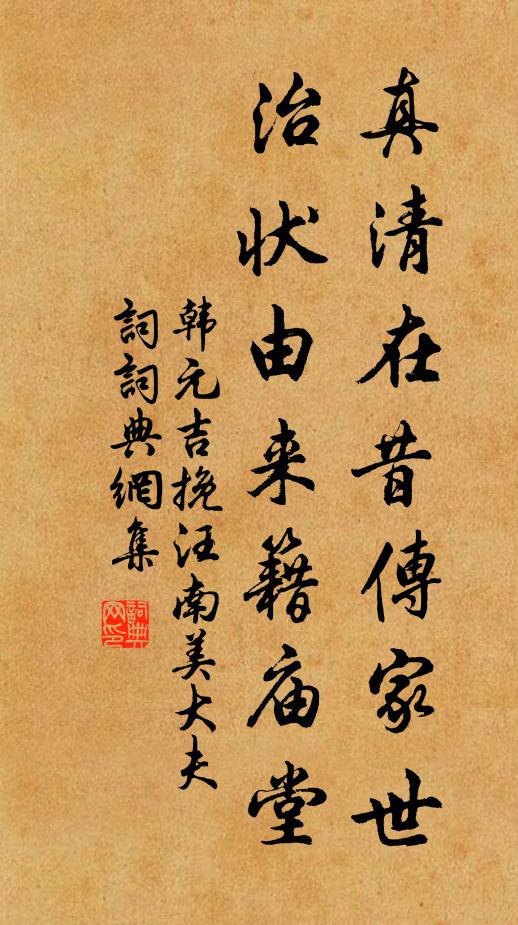 真清在昔傳家世
治状由来籍庙堂
韩元吉挽汪南美大夫
詞詞典網集
詞典网印